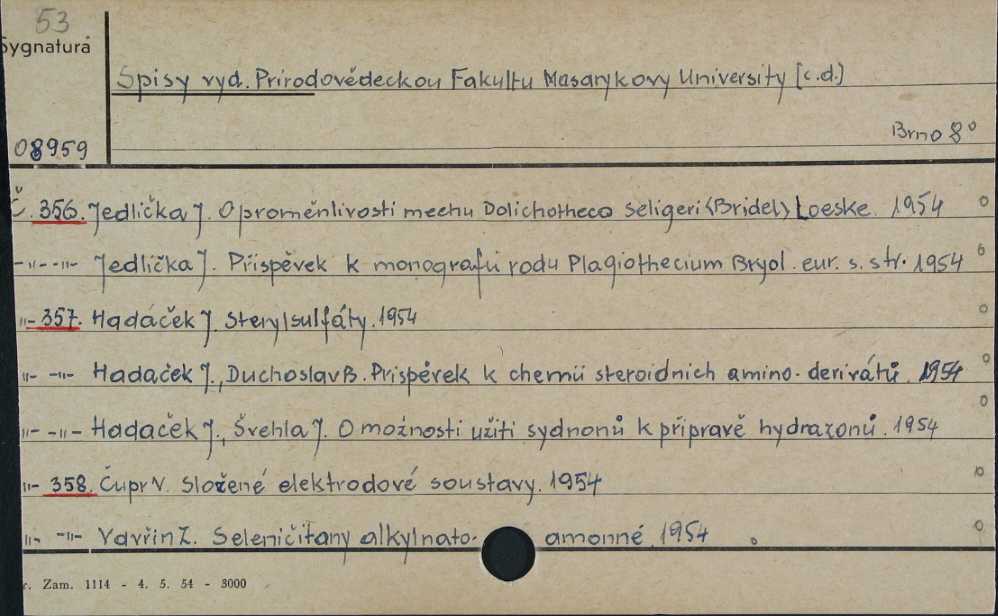 53
Sygnatura
Spisy vyd. Prirodovědeckou Fakultu Masarykovy University [c.d.)
Brno 8°
08959
Č. 356. Jedlička J. O proměnlivosti mechu Dolichotheca seligeri (Bridel) Loeske. 1954 0
-"- -"- Jedlička J. Příspěvek k monografii rodu Plagiothecium Bryol. eur. s. str. 1954 0
"- 357. Hadáček J. Sterylsulfáty. 1954 0
"- -"- Hadaček J., Duchoslav B. Prispěvek k chemii steroidnich amino-derivátů. 1954 0
"- -"- Hadaček J., Švehla J. O možnosti užiti sydnonů k připravě hydrazonů. 1954 0
"- 358. Čupr V. Složené elektrodové soustavy. 1954 0
"- -"- Vavřin Z. Seleničitany alkylnato- amonné. 1954 0
r. Zam. 1114 - 4. 5. 54 - 3000